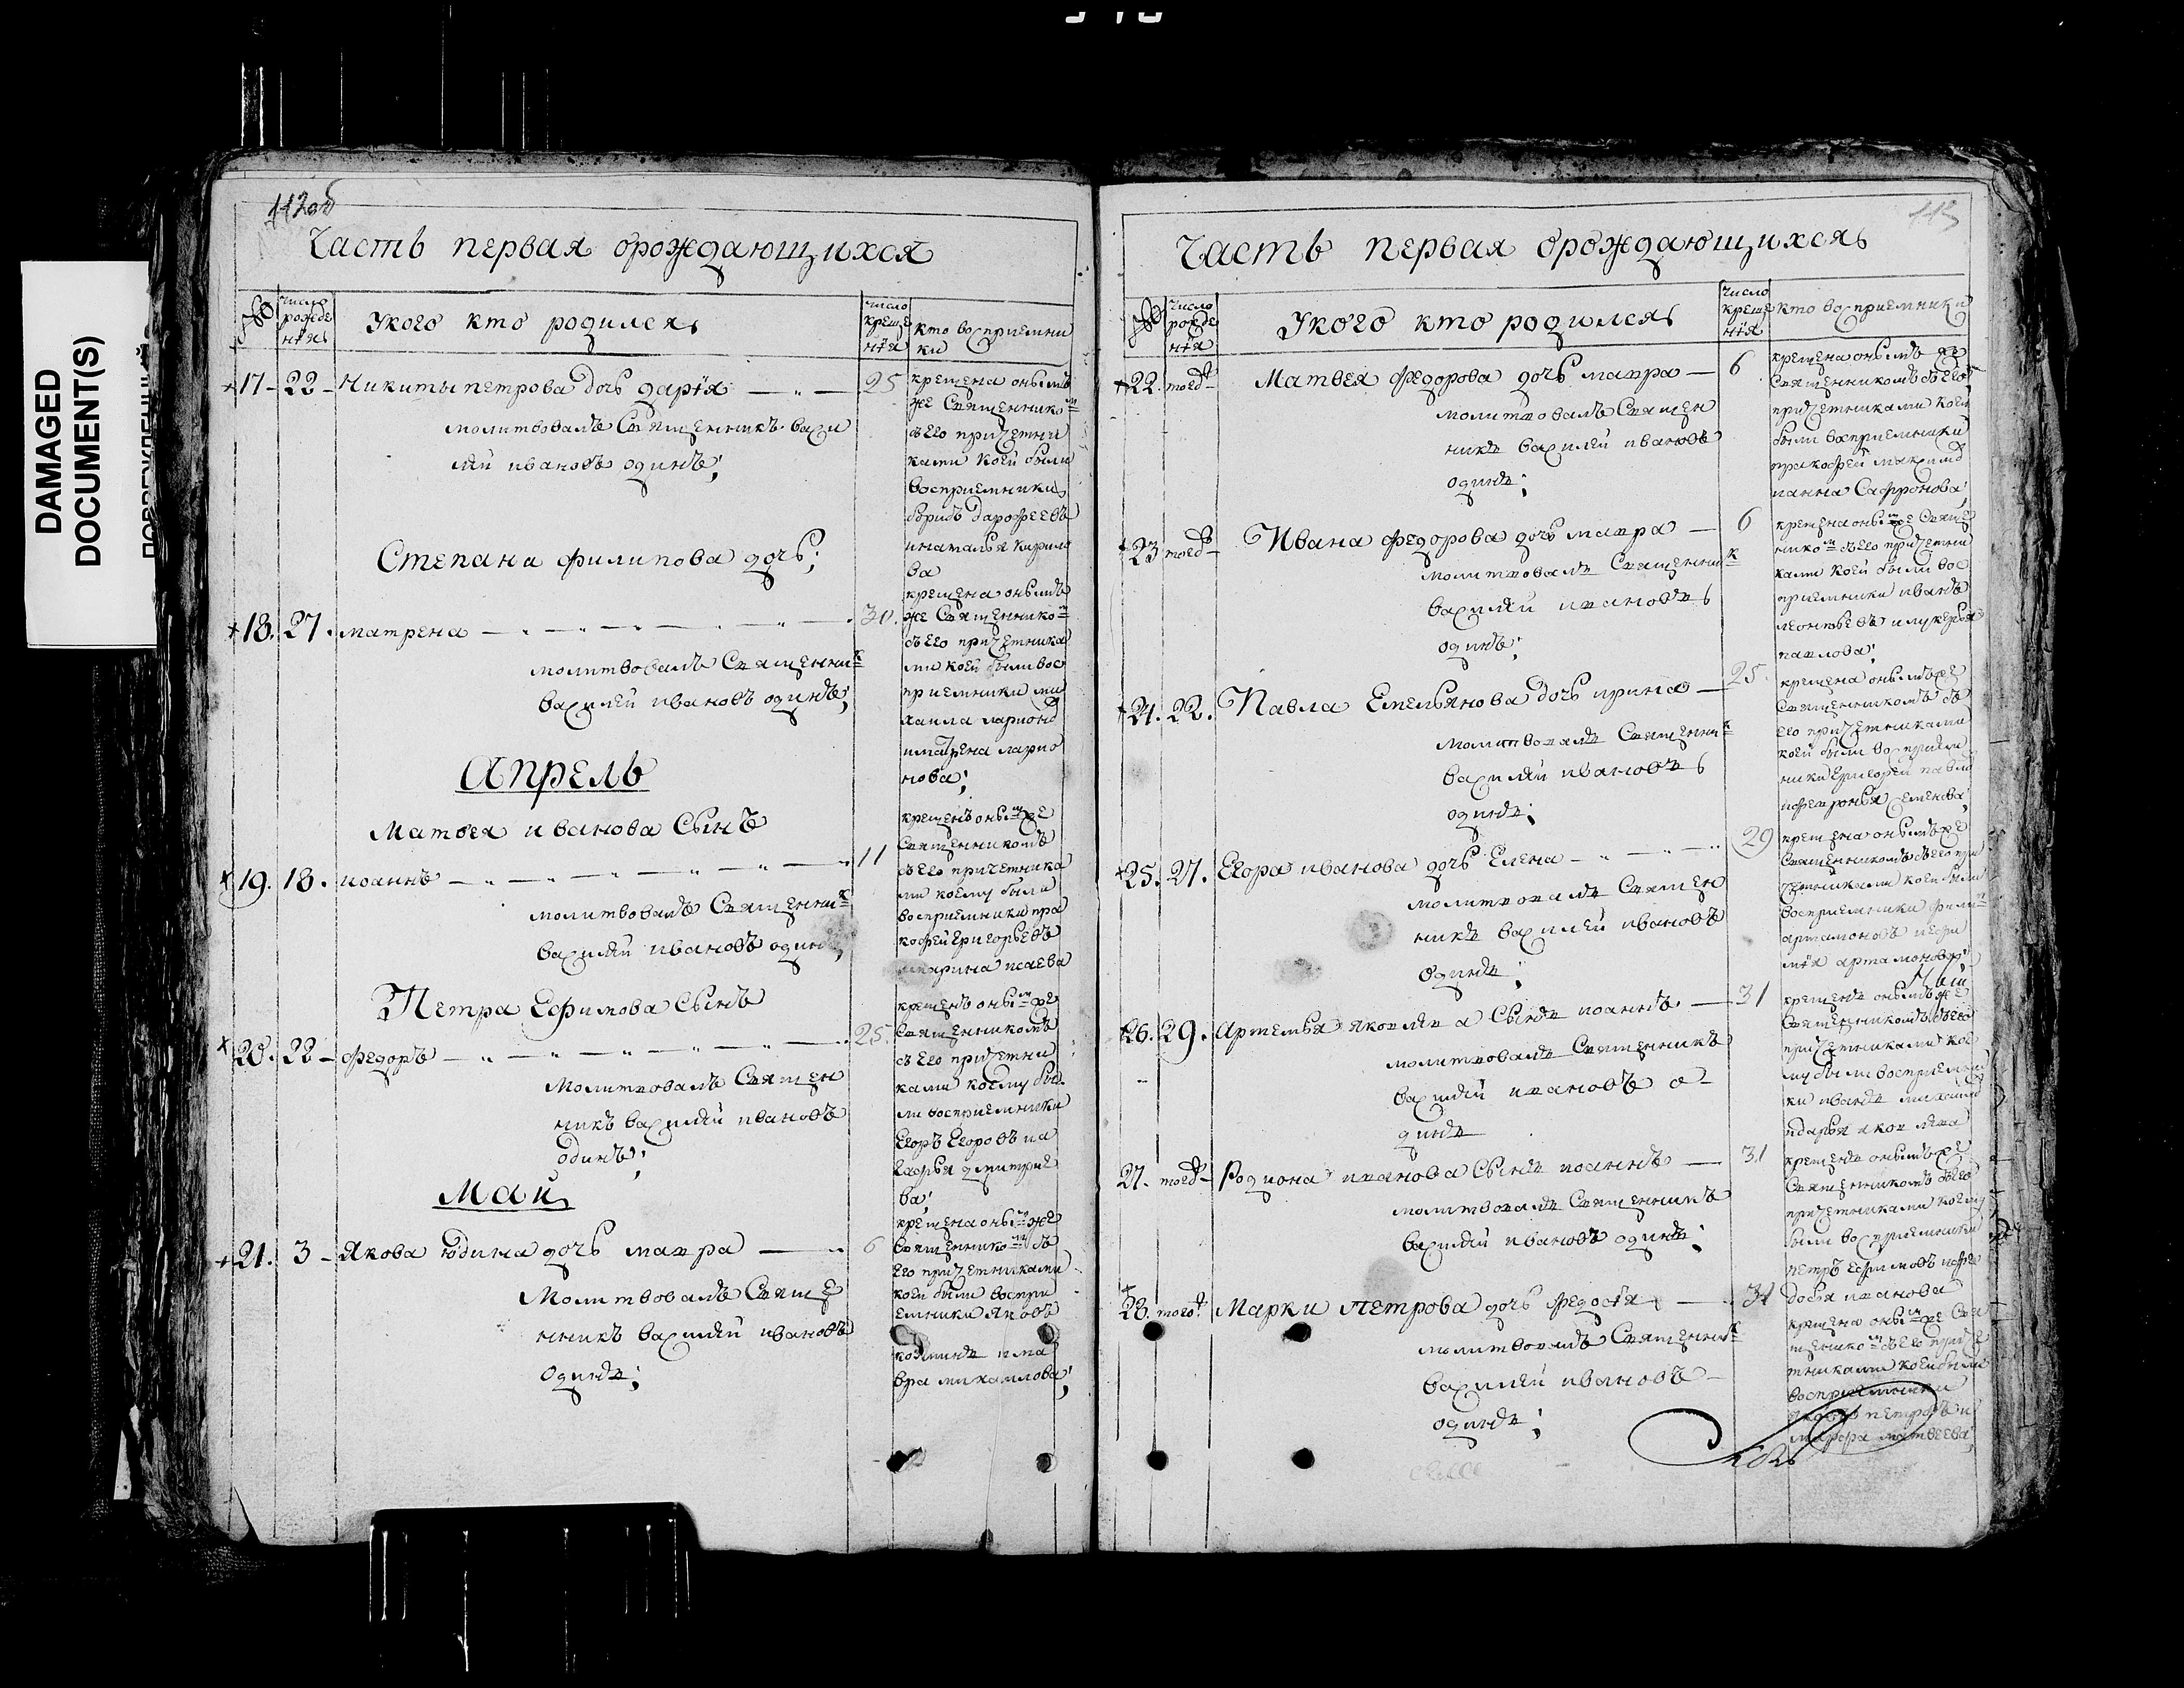 DAMAGED
DOCUMENT(S)
112об
Часть первая орождающихся
№
число
рожде
нїя
Укого кто родился
число
креще
нїя
кто восприемни
ки
17 - 22 - Никиты петрова дочь дарїя — „ — 25
молитвовалъ Священникъ васи
лий ивановъ одинъ;
крещена онымъ
же Священнико м
съ его причетни
ками коей были
восприемники
борисъ дарофеевъ
инаталья кирило
ва
Степана филипова дочь;
18. 27. матрена 30.
молитвовалъ Священни к
василей ивановъ одинъ;
крещена онымъ
же Священнико м
съ его причетника
ми коей были вос
приемники ми
хаила ларионо
иматрена ларио
нова;
Апрель
Матвея иванова Сынъ
19. 18. иоаннъ 11
молитвовалъ Священни к
василий ивановъ один
крещенъ оны м же
Священникомъ
съ его причетника
ми коему были
восприемники пра
кофей григорьевъ
имарина исаева
Петра Ефимова Сынъ
20. 22 - федоръ 25.
Молитвовалъ Священ
никъ василий ивановъ
одинъ;
крещенъ оны м же
Священникомъ
съ его причетни
ками коему бы
ли восприемники
Егоръ Егоровъ иа
гафья дмитрие
ва;
Май
21. 3 - Якова юдина дочь мавра — 6
Молитвовалъ Свяще
нникъ василий ивановъ
Одинъ;
крещена оны м же
Священнико м съ
его причетниками
коей были воспри
емники Яковъ
козминъ има
вра михаилова;
113
Часть первая орождающихся
№
Число
рожде
нїя
Укого кто родился
число
креще
нїя
кто восприемники
22. тогож Матвея федорова дочь мавра — 6
молитвовалъ Священ
никъ василей ивановъ
одинъ;
крещена онымъ же
Священникомъ съ его
причетниками коей
были восприемники
пракофей максимо
ианна Сафронова;
23 тогож Ивана федорова дочь мавра — 6
молитвовалъ Священни к
василий ивановъ
одинъ;
крещена оны м же Свяще
нико м съ его причетни
ками коей были вос
приемники иванъ
леонтьевъ илукерья
павлова;
24. 22. Павла Емельянова дочь ирина — 25.
Молитвовалъ Священни к
василий ивановъ
одинъ;
крещена онымъ же
Священникомъ съ
его причетниками
коей были восприем
ники григорей павло
ифевронья Семенова;
25. 27. Егора иванова дочь Елена 29
молитвовалъ Священ
никъ василей ивановъ
Одинъ;
крещена онымъ же
Священникомъ съ его при
четниками коей были
восприемники фили п
артамоновъ иефи
мїя артамонова;
26. 29. Артемья яковлева Сынъ иоаннъ — 31
молитвовалъ Священникъ
василий ивановъ о-
динъ
крещенъ онымъ же
Священникомъ съ его
причетниками кое
му были восприемни
ки иванъ михаило
идарья яковлева
27. тогож Родиона иванова Сынъ иоаннъ — 31
молитвовалъ Священникъ
василий ивановъ одинъ;
крещенъ онымъ же
Священникомъ съ его
причетниками коему
были восприемники
петръ ефимовъ ифео
досья иванова
28. тогож Марки петрова дочь федосїя — 31
молитвовалъ Священни к
василей ивановъ
одинъ;
крещена оны м же Свя
щеннико м съ его приче
тниками коей были
восприемники
яковъ петровъ и
марфа матвеева;